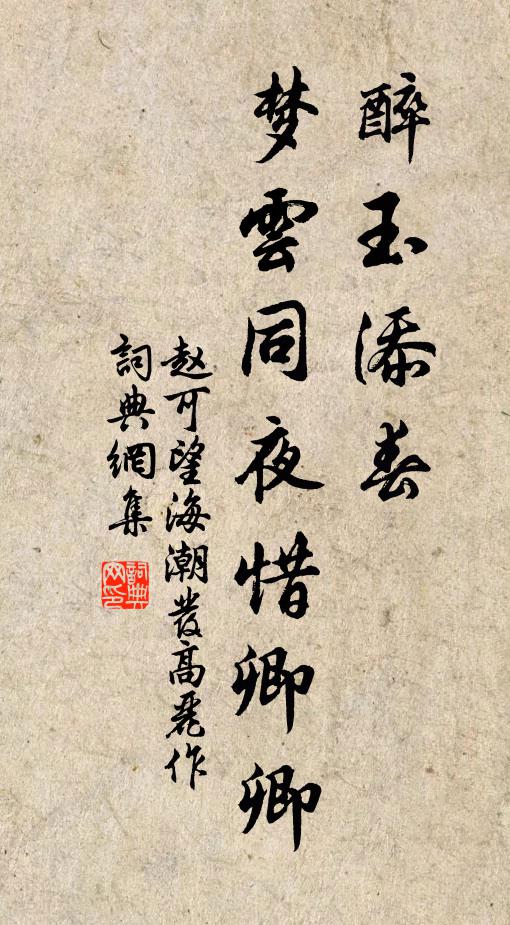 醉玉添春
梦雲同夜惜卿卿
赵可望海潮發高麗作
詞典網集
詞典网印